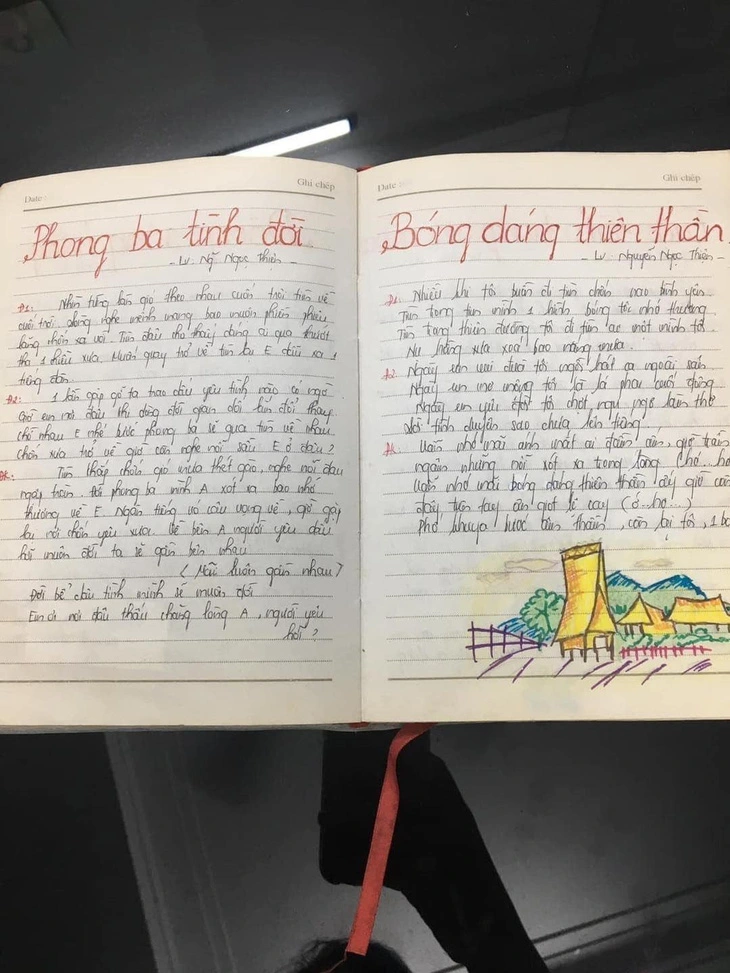 Date
Ghi chép
Phong ba tình đời
- Lv. Ng Ngọc Thiện -
Đ1: Nhìn từng làn gió theo nhau cuối trời tìm về
cuối trời, đừng nghe mênh mang bao muộn phiền
lòng chốn xa vời. Tìm đâu cho thấy dáng ai qua
tha 1 xưa. Muốn quay trở về tìm lại E dấu xa 1
tiếng đàn.
Đ2: 1 lần gặp gỡ ta trao dấu yêu tình nào có ngờ
Giờ em nơi đâu thì đừng đổi gian dối đổi thay
chờ nhau E nhé bước phong ba sẽ qua tìm về nhau
chốn xưa trở về giờ còn nghe nỗi sầu E ở đâu?
ĐK: Tìm thấp chốn gió mưa thét gào, nghe nỗi đau
ngày tràn. Đời phong ba mình A xót xa bao nhớ
thương về E. Ngàn tiếng và câu vọng về, giờ gặp
lại nơi chốn yêu xưa. Về bên A người yêu dấu
hỡi muôn đời ta sẽ gần bên nhau
(Mãi luôn gần nhau)
Đời bể câu tình mình sẽ muôn đời
Em ơi nơi đâu thấu chăng lòng A, người yêu
hỡi?
Date
Ghi chép
Bóng dáng thiên thần
- Lv. Nguyễn Ngọc Thiện -
Đ1: Nhiều khi tôi buồn đi tìm chốn nao bình yên
Tìm trong tim mình 1 hình bóng tôi nhớ thương
Tìm trong thiên đường tôi đi tìm ai một mình tôi
Nụ hồng xưa xoá bao nắng mưa.
Đ2. Ngày em vui đưa tôi ngồi hát ca ngoài sân
Ngày em mơ mộng tôi là lá phai cuối đông
Ngày em yêu đời tôi chơi ngu ngơ làm thơ
Lời tình duyên sao chưa lên tiếng.
ĐK Vẫn nhớ mãi ánh mắt ai đắm, giờ trần
ngẩm những nỗi xót xa trong lòng (hó..ho
Vẫn nhớ mãi bóng dáng thiên thần ấy giờ còn
đây trên tay gió sẽ cay (ó..ho..)
Phố khuya bước thần, còn lại tôi, 1